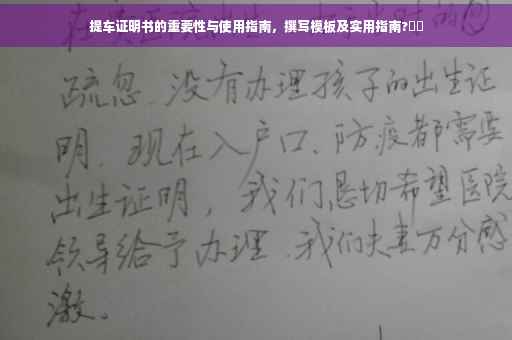 提车证明书的重要性与使用指南，撰写模板及实用指南?
疏忽、没有办理孩子的出生证
明、现在入户口、防疫都需要
出生证明，我们恳切希望医院
领导给予办理、我们夫妻万分感
激。